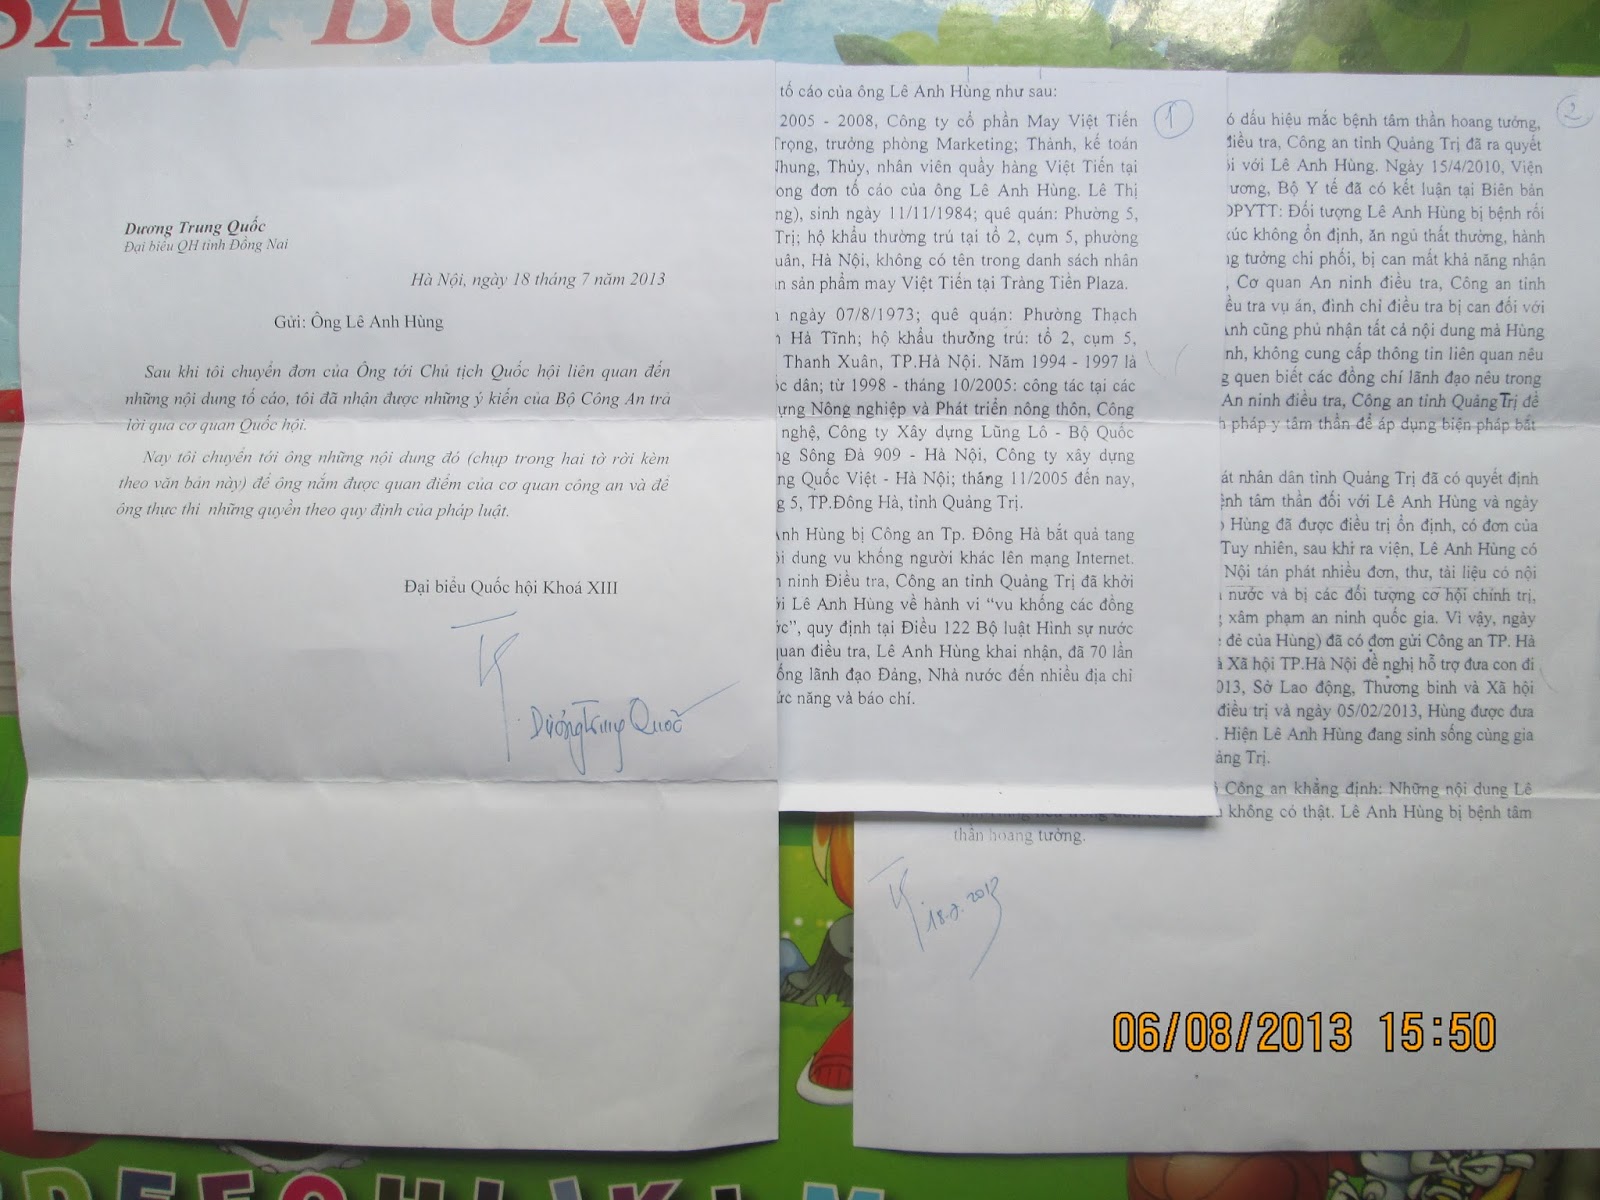 SÂN BÓNG
Dương Trung Quốc
Đại biểu QH tỉnh Đồng Nai
Hà Nội, ngày 18 tháng 7 năm 2013
Gửi: Ông Lê Anh Hùng
Sau khi tôi chuyển đơn của Ông tới Chủ tịch Quốc hội liên quan đến
những nội dung tố cáo, tôi đã nhận được những ý kiến của Bộ Công An trả
lời qua cơ quan Quốc hội.
Nay tôi chuyển tới ông những nội dung đó (chụp trong hai tờ rời kèm
theo văn bản này) để ông nắm được quan điểm của cơ quan công an và để
ông thực thi những quyền theo quy định của pháp luật.
Đại biểu Quốc hội Khoá XIII
Dương Trung Quốc
1
tố cáo của ông Lê Anh Hùng như sau:
2005 - 2008, Công ty cổ phần May Việt Tiến
Trọng, trưởng phòng Marketing; Thảnh, kế toán
Nhung, Thủy, nhân viên quầy hàng Việt Tiến tại
ong đơn tố cáo của ông Lê Anh Hùng. Lê Thị
ng), sinh ngày 11/11/1984; quê quán: Phường 5,
Trị; hộ khẩu thường trú tại tổ 2, cụm 5, phường
uân, Hà Nội, không có tên trong danh sách nhân
n sản phẩm may Việt Tiến tại Tràng Tiền Plaza.
ngày 07/8/1973; quê quán: Phường Thạch
Hà Tĩnh; hộ khẩu thường trú: tổ 2, cụm 5,
Thanh Xuân, TP.Hà Nội. Năm 1994 - 1997 là
ốc dân; từ 1998 - tháng 10/2005: công tác tại các
ựng Nông nghiệp và Phát triển nông thôn, Công
nghệ, Công ty Xây dựng Lũng Lô - Bộ Quốc
ng Sông Đà 909 - Hà Nội, Công ty xây dựng
ng Quốc Việt - Hà Nội; tháng 11/2005 đến nay,
g 5, TP.Đông Hà, tỉnh Quảng Trị.
Anh Hùng bị Công an Tp. Đông Hà bắt quả tang
ội dung vu khống người khác lên mạng Internet.
n ninh Điều tra, Công an tỉnh Quảng Trị đã khởi
ới Lê Anh Hùng về hành vi “vu khống các đồng
ớc”, quy định tại Điều 122 Bộ luật Hình sự nước
quan điều tra, Lê Anh Hùng khai nhận, đã 70 lần
ống lãnh đạo Đảng, Nhà nước đến nhiều địa chỉ
ức năng và báo chí.
2
ó dấu hiệu mắc bệnh tâm thần hoang tưởng,
điều tra, Công an tỉnh Quảng Trị đã ra quyết
ối với Lê Anh Hùng. Ngày 15/4/2010, Viện
ương, Bộ Y tế đã có kết luận tại Biên bản
ĐPYTT: Đối tượng Lê Anh Hùng bị bệnh rối
xúc không ổn định, ăn ngủ thất thường, hành
ng tưởng chi phối, bị can mất khả năng nhận
, Cơ quan An ninh điều tra, Công an tỉnh
ều tra vụ án, đình chỉ điều tra bị can đối với
Anh cũng phủ nhận tất cả nội dung mà Hùng
nh, không cung cấp thông tin liên quan nêu
g quen biết các đồng chí lãnh đạo nêu trong
An ninh điều tra, Công an tỉnh Quảng Trị đề
h pháp y tâm thần để áp dụng biện pháp bắt
át nhân dân tỉnh Quảng Trị đã có quyết định
ệnh tâm thần đối với Lê Anh Hùng và ngày
Hùng đã được điều trị ổn định, có đơn của
Tuy nhiên, sau khi ra viện, Lê Anh Hùng có
Nội tán phát nhiều đơn, thư, tài liệu có nội
nước và bị các đối tượng cơ hội chính trị,
g xâm phạm an ninh quốc gia. Vì vậy, ngày
đẻ của Hùng) đã có đơn gửi Công an TP. Hà
à Xã hội TP.Hà Nội đề nghị hỗ trợ đưa con đi
013, Sở Lao động, Thương binh và Xã hội
điều trị và ngày 05/02/2013, Hùng được đưa
. Hiện Lê Anh Hùng đang sinh sống cùng gia
ảng Trị.
Công an khẳng định: Những nội dung Lê
không có thật. Lê Anh Hùng bị bệnh tâm
thần hoang tưởng.
18.7.2013
06/08/2013 15:50